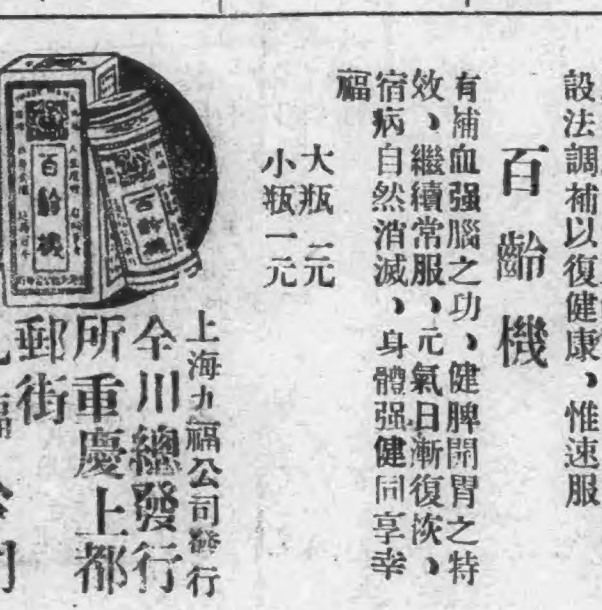 設法調補以復健康、惟速服
百齡機
有補血强腦之功、健脾開胃之特
效、繼續常服、元氣日漸復恢、
宿病自然消滅、身體强健同享幸
福
大瓶二元
小瓶一元
百齡機
百齡機
上海九福公司發行
全川總發行
所重慶上都
郵街